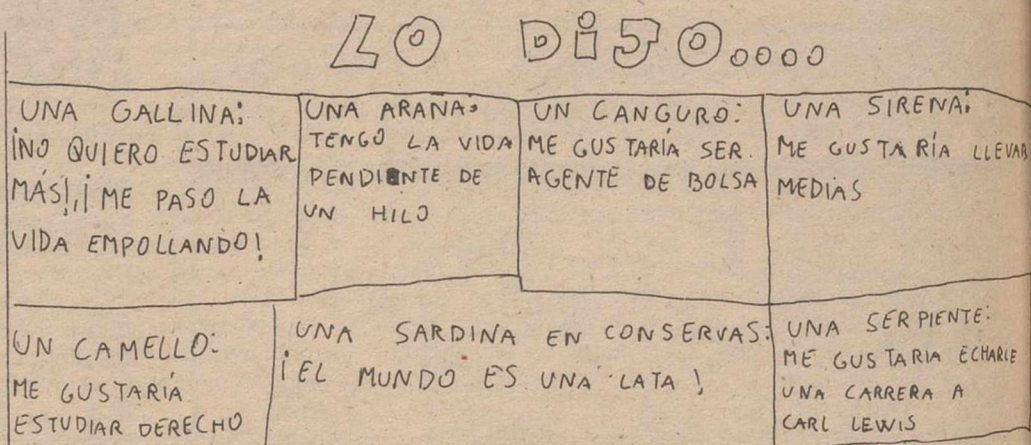 LO DIJO....
UNA GALLINA:
¡NO QUIERO ESTUDIAR
MÁS!, ¡ME PASO LA
VIDA EMPOLLANDO!
UNA ARAÑA:
TENGO LA VIDA
PENDIENTE DE
UN HILO
UN CANGURO:
ME GUSTARÍA SER
AGENTE DE BOLSA
UNA SIRENA:
ME GUSTARÍA LLEVAR
MEDIAS
UN CAMELLO:
ME GUSTARÍA
ESTUDIAR DERECHO
UNA SARDINA EN CONSERVAS:
¡EL MUNDO ES UNA LATA!
UNA SERPIENTE:
ME GUSTARIA ECHARLE
UNA CARRERA A
CARL LEWIS